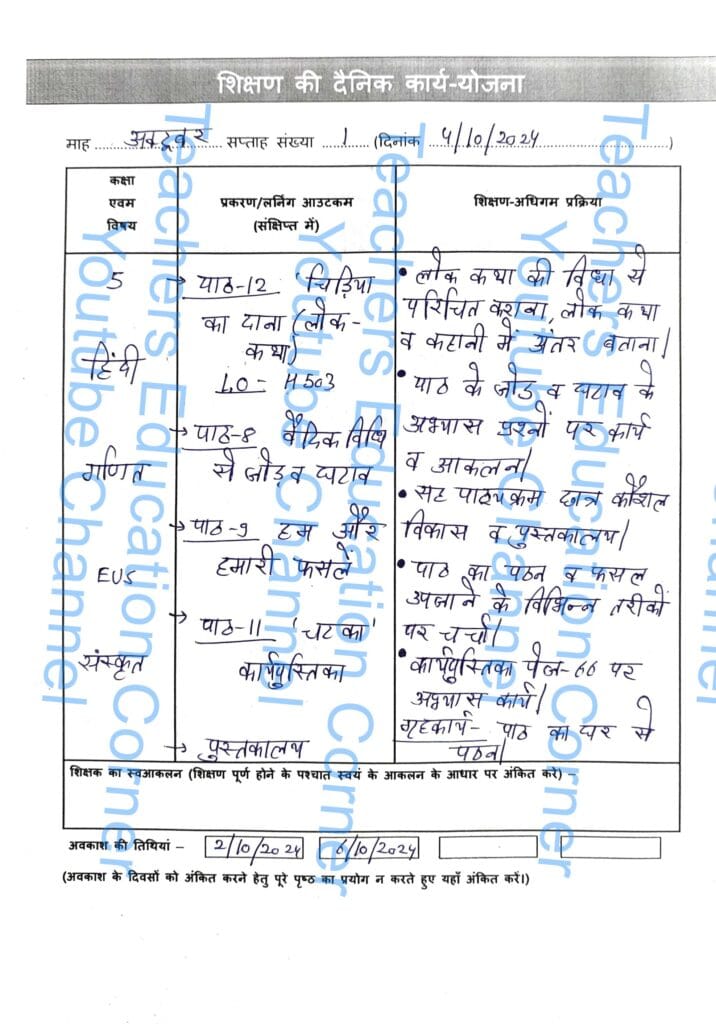 शिक्षण की दैनिक कार्य-योजना
माह अक्टूबर सप्ताह संख्या 1 (दिनांक 4/10/2024)
कक्षा एवम विषय
प्रकरण/लर्निंग आउटकम (संक्षिप्त में)
शिक्षण-अधिगम प्रक्रिया
5
हिंदी
गणित
EVS
संस्कृत
→ पाठ-12 'चिड़िया
का दाना (लोक-
कथा)
LO - H503
→ पाठ-8 वैदिक विधि
से जोड़ व घटाव
→ पाठ-9 हम और
हमारी फसलें
→ पाठ-11 'चटका'
कार्यपुस्तिका
→ पुस्तकालय
• लोक कथा की विधा से
परिचित कराना, लोक कथा
व कहानी में अंतर बताना।
• पाठ के जोड़ व घटाव के
अभ्यास प्रश्नों पर कार्य
व आकलन।
• सह पाठ्यक्रम छात्र कौशल
विकास व पुस्तकालय।
• पाठ का पठन व फसल
उपजाने के विभिन्न तरीकों
पर चर्चा।
• कार्यपुस्तिका पेज-66 पर
अभ्यास कार्य।
गृहकार्य - पाठ का घर से
पठन।
शिक्षक का स्वआकलन (शिक्षण पूर्ण होने के पश्चात स्वयं के आकलन के आधार पर अंकित करें) –
अवकाश की तिथियां – 2/10/2024 6/10/2024
(अवकाश के दिवसों को अंकित करने हेतु पूरे पृष्ठ का प्रयोग न करते हुए यहाँ अंकित करें।)
Teachers Education Corner
Youtube Channel
Teachers Education Corner
Youtube Channel
Teachers Education Corner
Youtube Channel